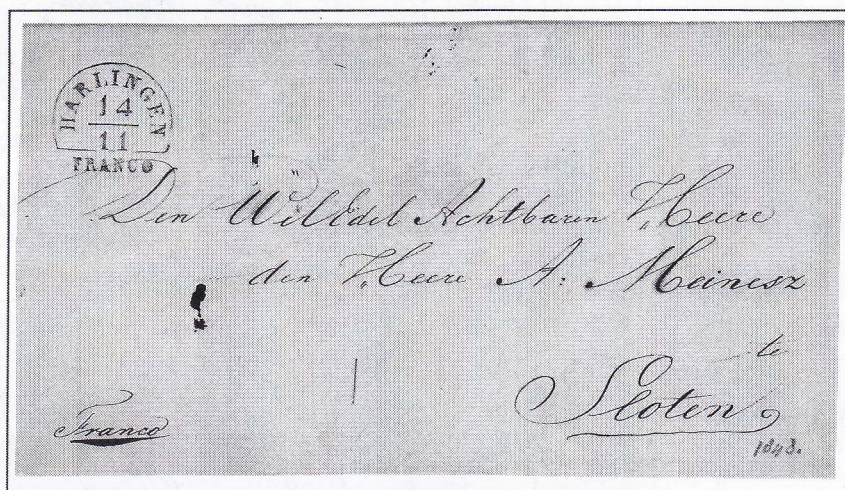 HARLINGEN
14
11
FRANCO
Den WelEdel Achtbaren Heere
den Heere A: Meinesz
te
Sloten
Franco
1848.